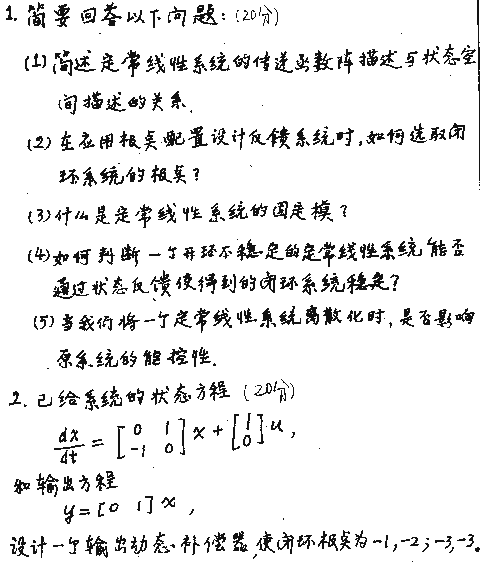 1. 简要回答以下问题：(20分)
(1) 简述定常线性系统的传递函数阵描述与状态空
间描述的关系.
(2) 在应用极点配置设计反馈系统时,如何选取闭
环系统的极点?
(3) 什么是定常线性系统的固定模?
(4) 如何判断一个开环不稳定的定常线性系统能否
通过状态反馈使得到的闭环系统稳定?
(5) 当我们将一个定常线性系统离散化时,是否影响
原系统的能控性.
2. 已给系统的状态方程 (20分)
dx/dt = [0 1; -1 0] x + [1; 0] u,
和输出方程
y = [0 1] x,
设计一个输出动态补偿器,使闭环极点为 -1, -2; -3, -3。